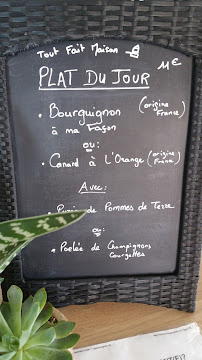 Tout Fait Maison
PLAT DU JOUR 11€
• Bourguignon (origine France)
à ma façon
ou:
• Canard à L'Orange (origine France)
Avec:
de Pommes de Terre
ou:
• Poêlée de Champignons
Courgettes